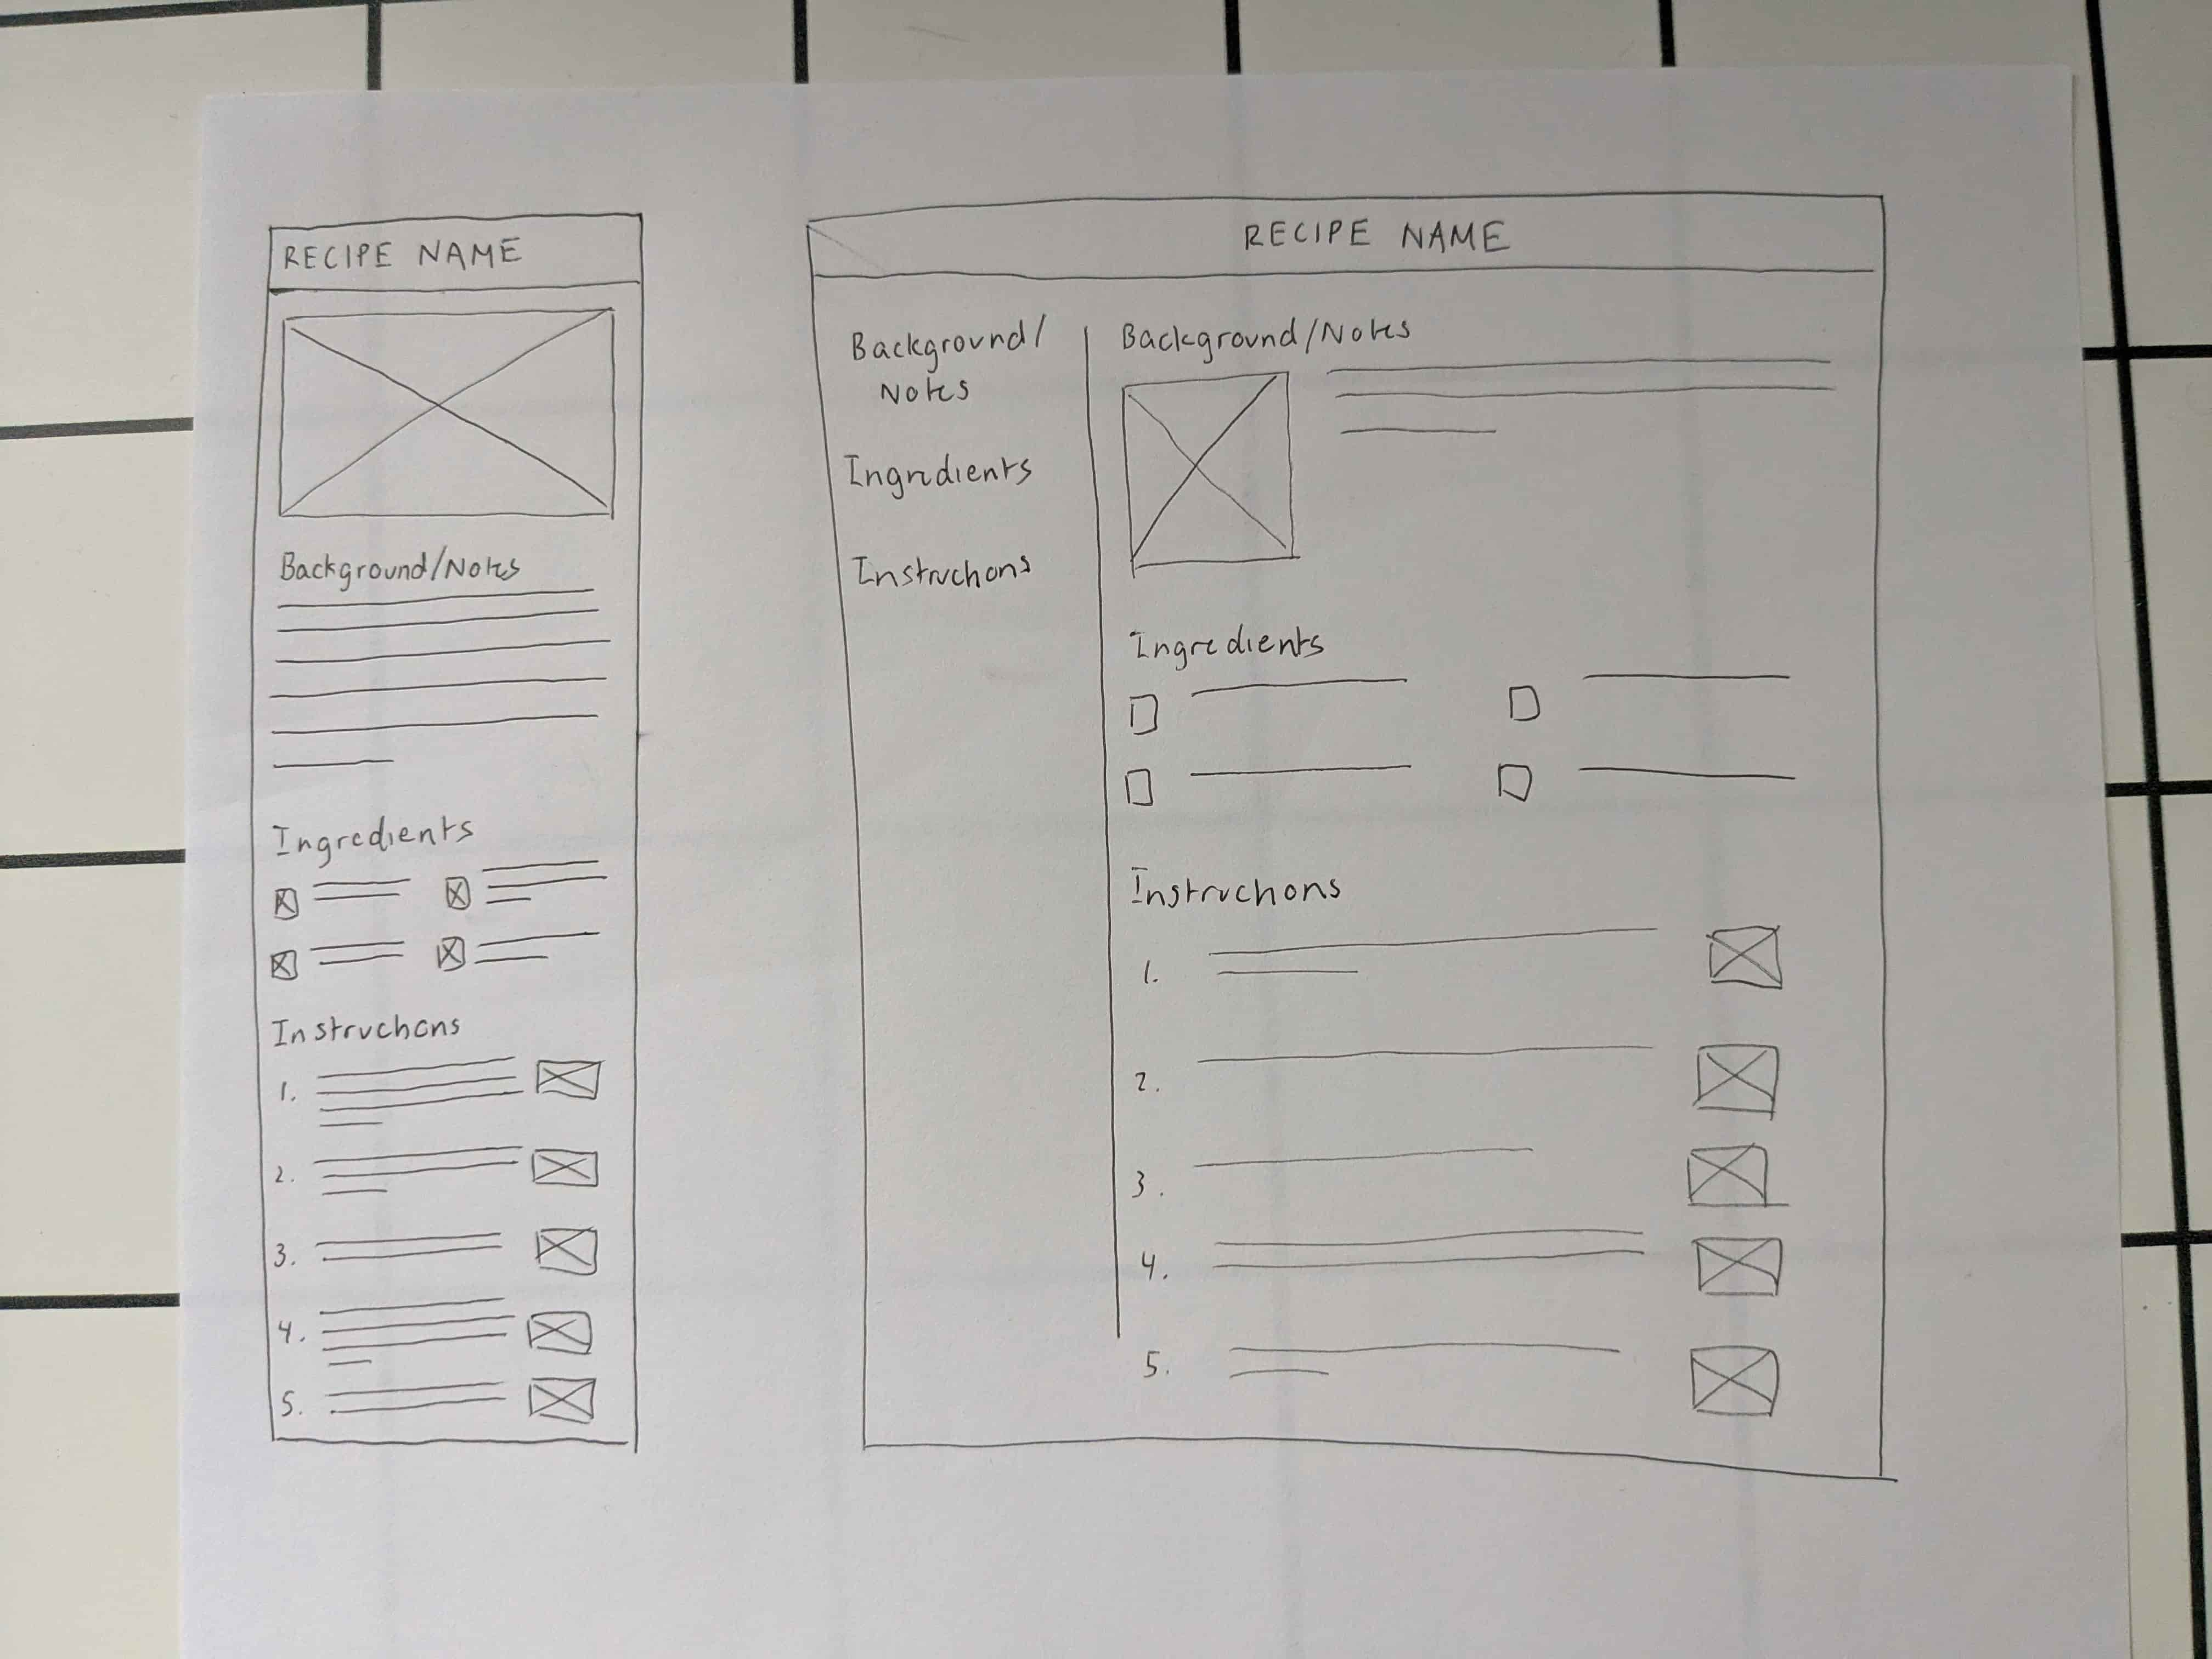 RECIPE NAME
Background/Notes
Ingredients
Instructions
1.
2.
3.
4.
5.
RECIPE NAME
Background/
Notes
Ingredients
Instructions
Background/Notes
Ingredients
Instructions
1.
2.
3.
4.
5.